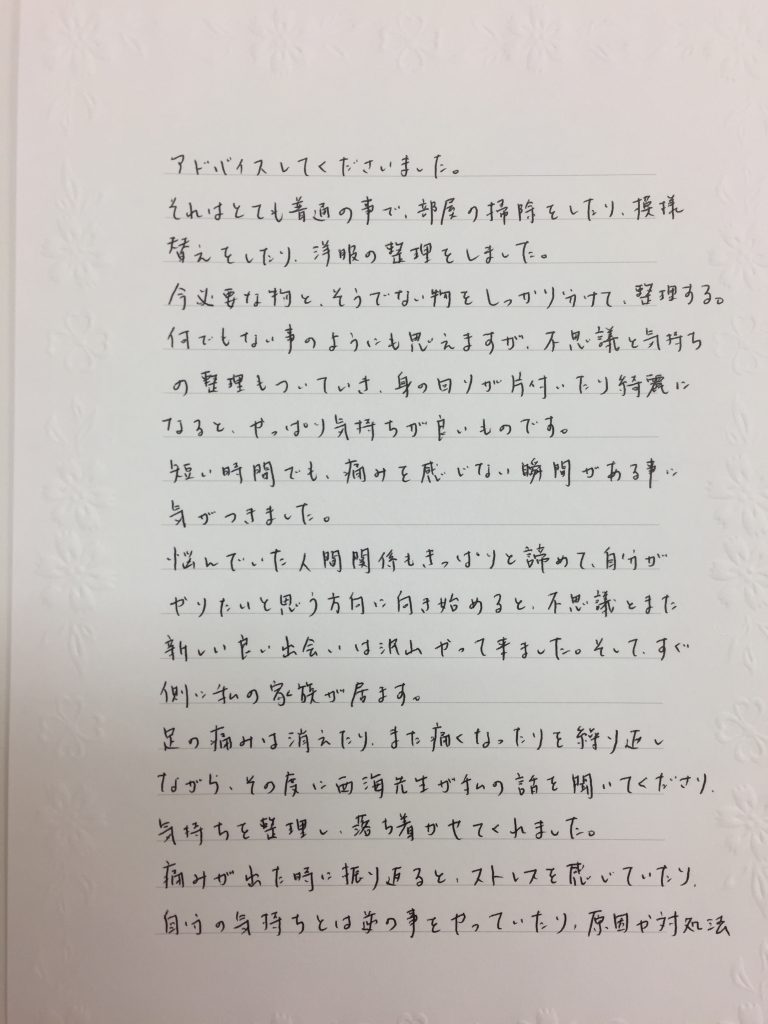 アドバイスしてくださいました。
それはとても普通の事で、部屋の掃除をしたり、模様
替えをしたり、洋服の整理をしました。
今必要な物と、そうでない物をしっかり分けて、整理する。
何でもない事のようにも思えますが、不思議と気持ち
の整理もついていき、身の回りが片付いたり綺麗に
なると、やっぱり気持ちが良いものです。
短い時間でも、痛みを感じない瞬間がある事に
気がつきました。
悩んでいた人間関係もきっぱりと諦めて、自分が
やりたいと思う方向に向き始めると、不思議とまた
新しい良い出会いは沢山やって来ました。そして、すぐ
側に私の家族が居ます。
足の痛みは消えたり、また痛くなったりを繰り返し
ながら、その度に西海先生が私の話を聞いてくださり、
気持ちを整理し、落ち着かせてくれました。
痛みが出た時に振り返ると、ストレスを感じていたり、
自分の気持ちとは逆の事をやっていたり、原因や対処法